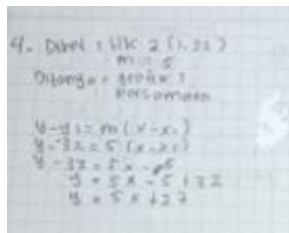 4. Diket : titik 2 (1, 32)
m = 5
Ditanya = grafik ?
Persamaan
y - y1 = m (x - x1)
y - 32 = 5 (x - x1)
y - 32 = 5x - 5
y = 5x - 5 + 32
y = 5x + 27